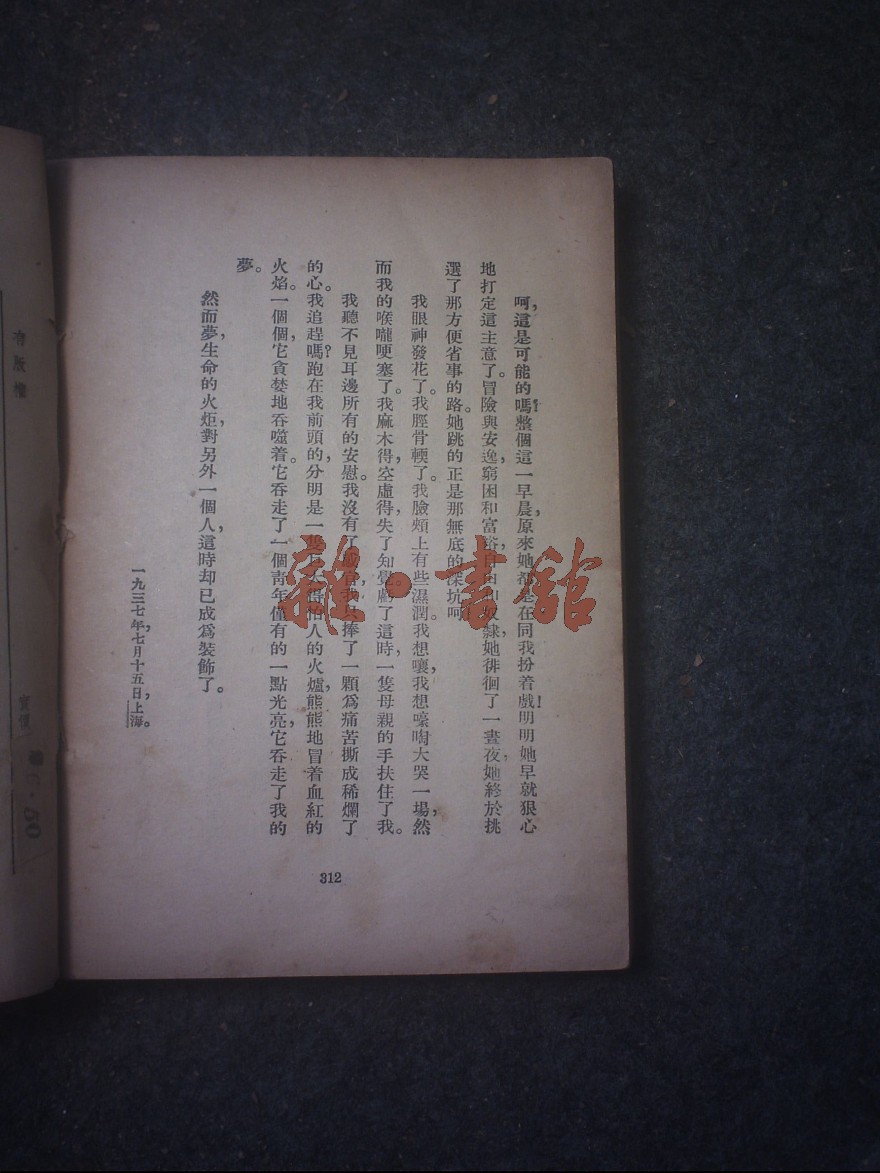 呵，這是可能的嗎？整個這一早晨，原來她都是在同我扮着戲！明明她早就狠心
地打定這主意了。冒險與安逸，窮困和富裕，自由和奴隸，她徘徊了一晝夜，她終於挑
選了那方便省事的路。她跳的正是那無底的深坑呵
我眼神發花了。我脛骨輭了。我臉頰上有些濕潤。我想嚷，我想嚎啕大哭一場，然
而我的喉嚨哽塞了。我麻木得，空虛得，失了知覺，這時，一隻母親的手扶住了我。
我聽不見耳邊所有的安慰。我沒有了感官，我捧了一顆爲痛苦撕成稀爛了
的心。我追趕嗎？跑在我前頭的，分明是一隻巨大得怕人的火爐，熊熊地冒着血紅的
火焰。一個個，它貪婪地吞噬着。它吞走了一個靑年僅有的一點光亮，它吞走了我的
夢。
然而夢，生命的火炬，對另外一個人，這時却已成爲裝飾了。
一九三七年，七月十五日，上海。
312
有版權
實價
·50
雜·書館